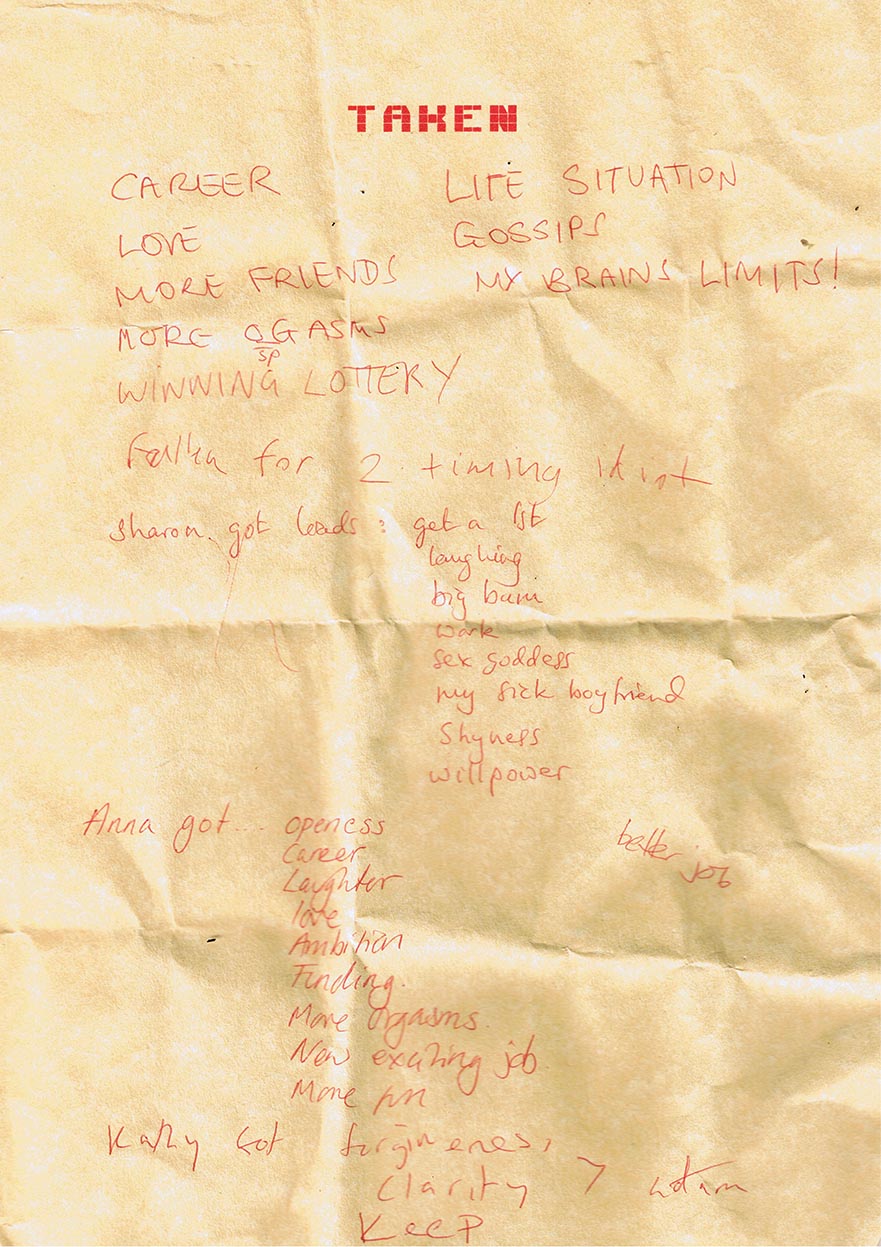 TAKEN
CAREER
LOVE
MORE FRIENDS
MORE OGASMS
SP
WINNING LOTTERY
LIFE SITUATION
GOSSIPS
MY BRAINS LIMITS!
for 2 timing idiot
Sharon. got loads: get a list
laughing
big bum
work
sex goddess
my sick boyfriend
Shyness
willpower
Anna got.... openess
Career
Laughter
love
Ambition
Finding.
More orgasms.
New exciting job
More fun
better job
Kathy Got forgiveness,
Clarity
KeeP